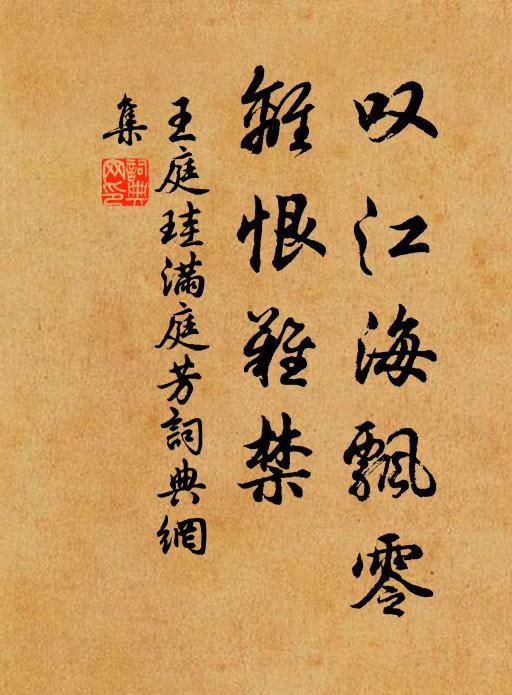 叹江海飄零
離恨難禁
王庭珪满庭芳詞典網
集
詞典
网印